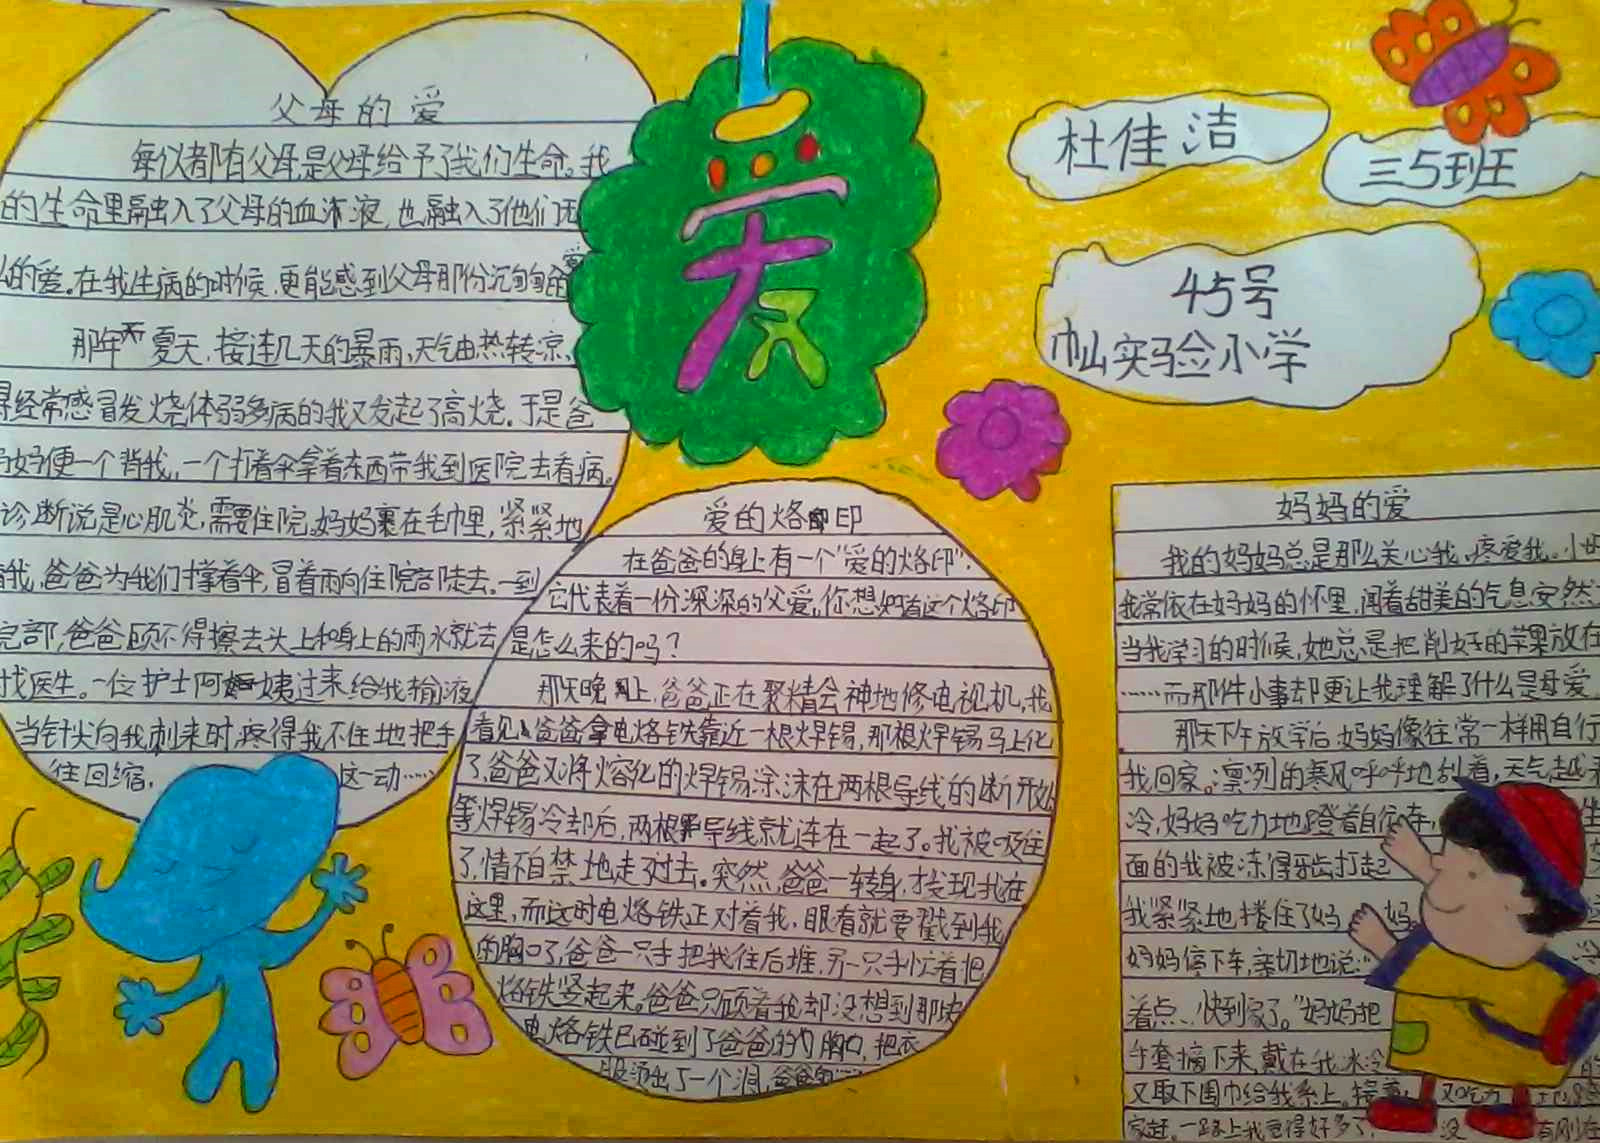 父母的爱
每似都有父母,是父母给予了我们生命。我
的生命里融入了父母的血液,也融入了他们无
的爱。在我生病的时候,更能感到父母那份沉甸甸的爱
那年夏天,接连几天的暴雨,天气由热转凉,
经常感冒发烧体弱多病的我又发起了高烧。于是爸
妈便一个背我,一个打着伞拿着东西带我到医院去看病。
诊断说是心肌炎,需要住院。妈妈裹在毛巾里,紧紧地
我,爸爸为我们撑着伞,冒着雨向住院部走去。一到
院部,爸爸顾不得擦去头上和身上的雨水就去
找医生。一位护士阿姨过来给我输液
当针尖向我刺来时,疼得我不住地把手
往回缩. 这一动……
爱
杜佳洁
三5班
45号
巾山实验小学
爱的烙印
在爸爸的身上有一个"爱的烙印".
它代表着一份深深的父爱。你想知道这个烙印
是怎么来的吗?
那天晚上,爸爸正在聚精会神地修电视机,我
看见爸爸拿电烙铁靠近一根焊锡,那根焊锡马上化
了,爸爸又将熔化的焊锡涂沫在两根导线的断开处
等焊锡冷却后,两根导线就连在一起了。我被吸住
了,情不自禁地走了过去。突然,爸爸一转身,才发现我在
这里,而这时电烙铁正对着我,眼看就要戳到我
的胸口了,爸爸一只手把我往后堆,另一只手忙着把
烙铁竖起来。爸爸只顾着我却没想到那块
电烙铁已碰到了爸爸的胸口,把衣
服烫出了一个洞,爸爸的
妈妈的爱
我的妈妈总是那么关心我、疼爱我。小时
我常依在妈妈的怀里,闻着甜美的气息安然
当我学习的时候,她总是把削好的苹果放在
……而那件小事却更让我理解了什么是母爱
那天下午放学后,妈妈像往常一样用自行
我回家。凛冽的寒风呼呼地刮着,天气越来
冷,妈妈吃力地蹬着自行车,
面的我被冻得牙齿打起
我紧紧地搂住了妈妈
妈妈停下车,亲切地说:"
着点、快到家了。"妈妈把
手套摘下来,戴在我冰冷
又取下围巾给我系上。接着, 又吃力
家赶。一路上我觉得好多了, 没